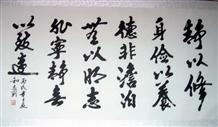 静以修
身儉以養
德非澹泊
無以明志
非寧靜無
以致遠